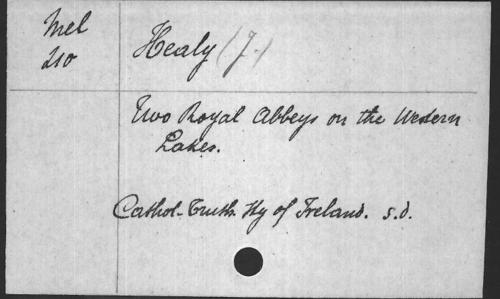 Mel
210
Healy (J.)
Two Royal Abbeys on the Western
Lakes.
Cathol. Truth. Sty of Ireland. s.d.